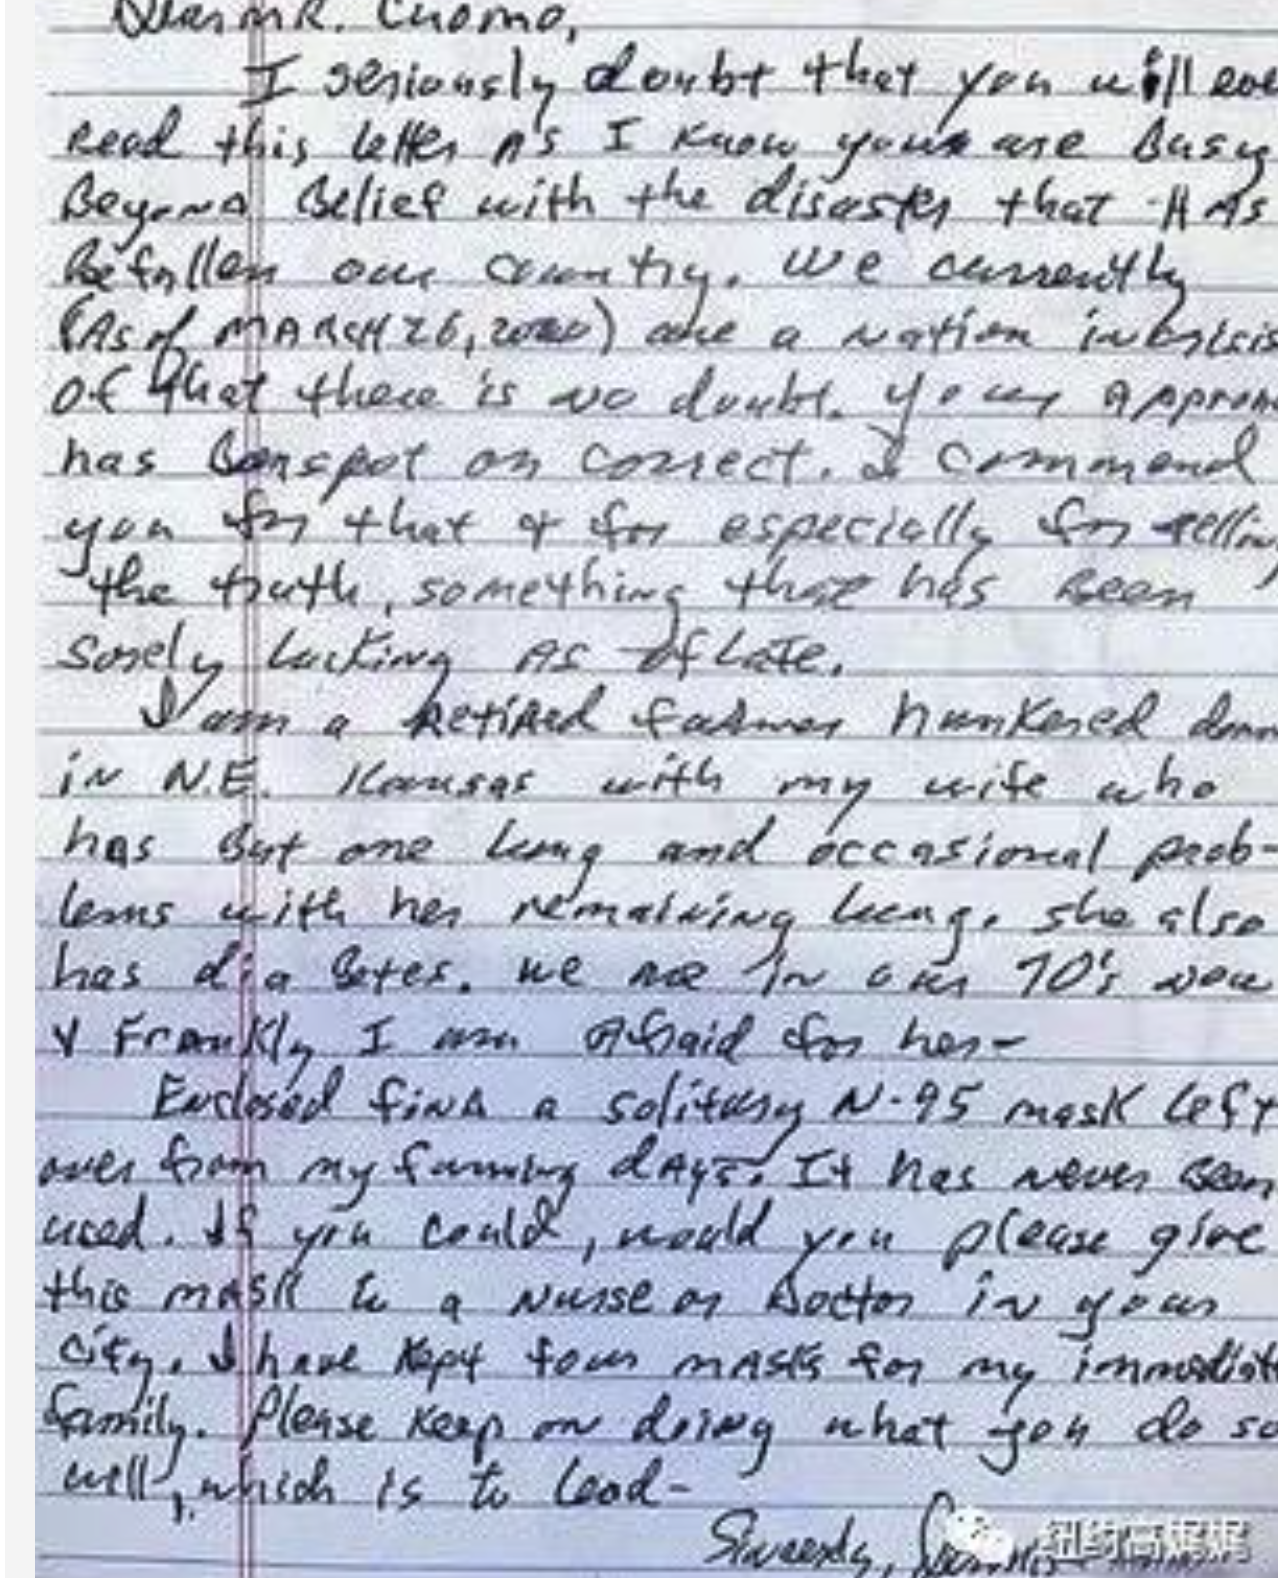 Dear MR. Cuomo,
I seriously doubt that you will eve
read this letter as I know your are busy
beyond belief with the disaster that has
befallen our country. We currently
(as of MARCH 26, 2020) are a nation in crisis
of that there is no doubt. Your approa
has been spot on correct. I commend
you for that & for especially for telling
the truth, something that has been
sorely lacking as of late.
I am a retired farmer hunkered down
in N.E. Kansas with my wife who
has but one lung and occasional prob-
lems with her remaining lung. She also
has diabetes. We are in our 70's now
& Frankly I am afraid for her-
Enclosed find a solitary N-95 mask left
over from my farming days. It has never been
used. If you could, would you please give
this mask to a nurse or doctor in your
city. I have kept four masks for my immediate
family. Please keep on doing what you do so
well, which is to lead-
Sincerely,
纽约高娓娓